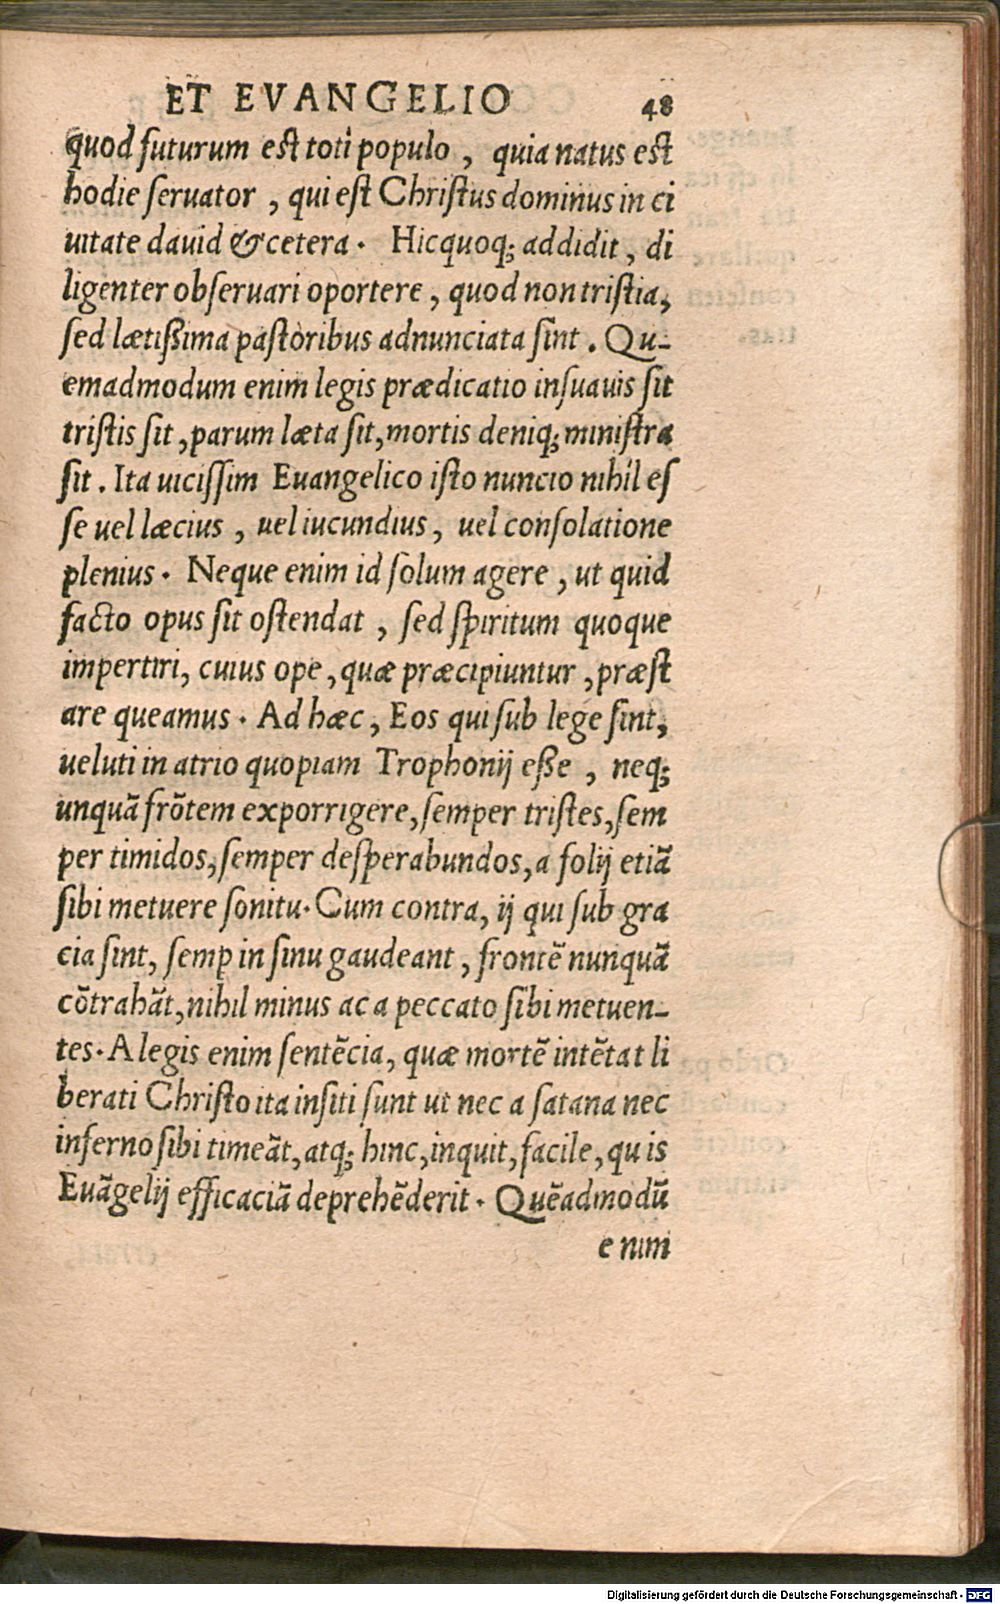 ET EVANGELIO 48
quod futurum est toti populo, quia natus est
hodie seruator, qui est Christus dominus in ci
uitate dauid & cetera. Hic quoq; addidit, di
ligenter obseruari oportere, quod non tristia,
sed lætißima pastoribus adnunciata sint. Qu-
emadmodum enim legis prædicatio insuauis sit
tristis sit, parum læta sit, mortis deniq; ministra
sit. Ita uicissim Euangelico isto nuncio nihil es
se uel læcius, uel iucundius, uel consolatione
plenius. Neque enim id solum agere, ut quid
facto opus sit ostendat, sed spiritum quoque
impertiri, cuius ope, quæ præcipiuntur, præst
are queamus. Ad hæc, Eos qui sub lege sint,
ueluti in atrio quopiam Trophonij eße, neq;
unquã frõtem exporrigere, semper tristes, sem
per timidos, semper desperabundos, a folij etiã
sibi metuere sonitu. Cum contra, ij qui sub gra
cia sint, semp in sinu gaudeant, frontẽ nunquã
cõtrahãt, nihil minus ac a peccato sibi metuen-
tes. A legis enim sentẽcia, quæ mortẽ intẽtat li
berati Christo ita insiti sunt ut nec a satana nec
inferno sibi timeãt, atq; hinc, inquit, facile, qu is
Euãgelij efficaciã deprehẽderit. Quẽadmodũ
e nim
Digitalisierung gefördert durch die Deutsche Forschungsgemeinschaft - DFG